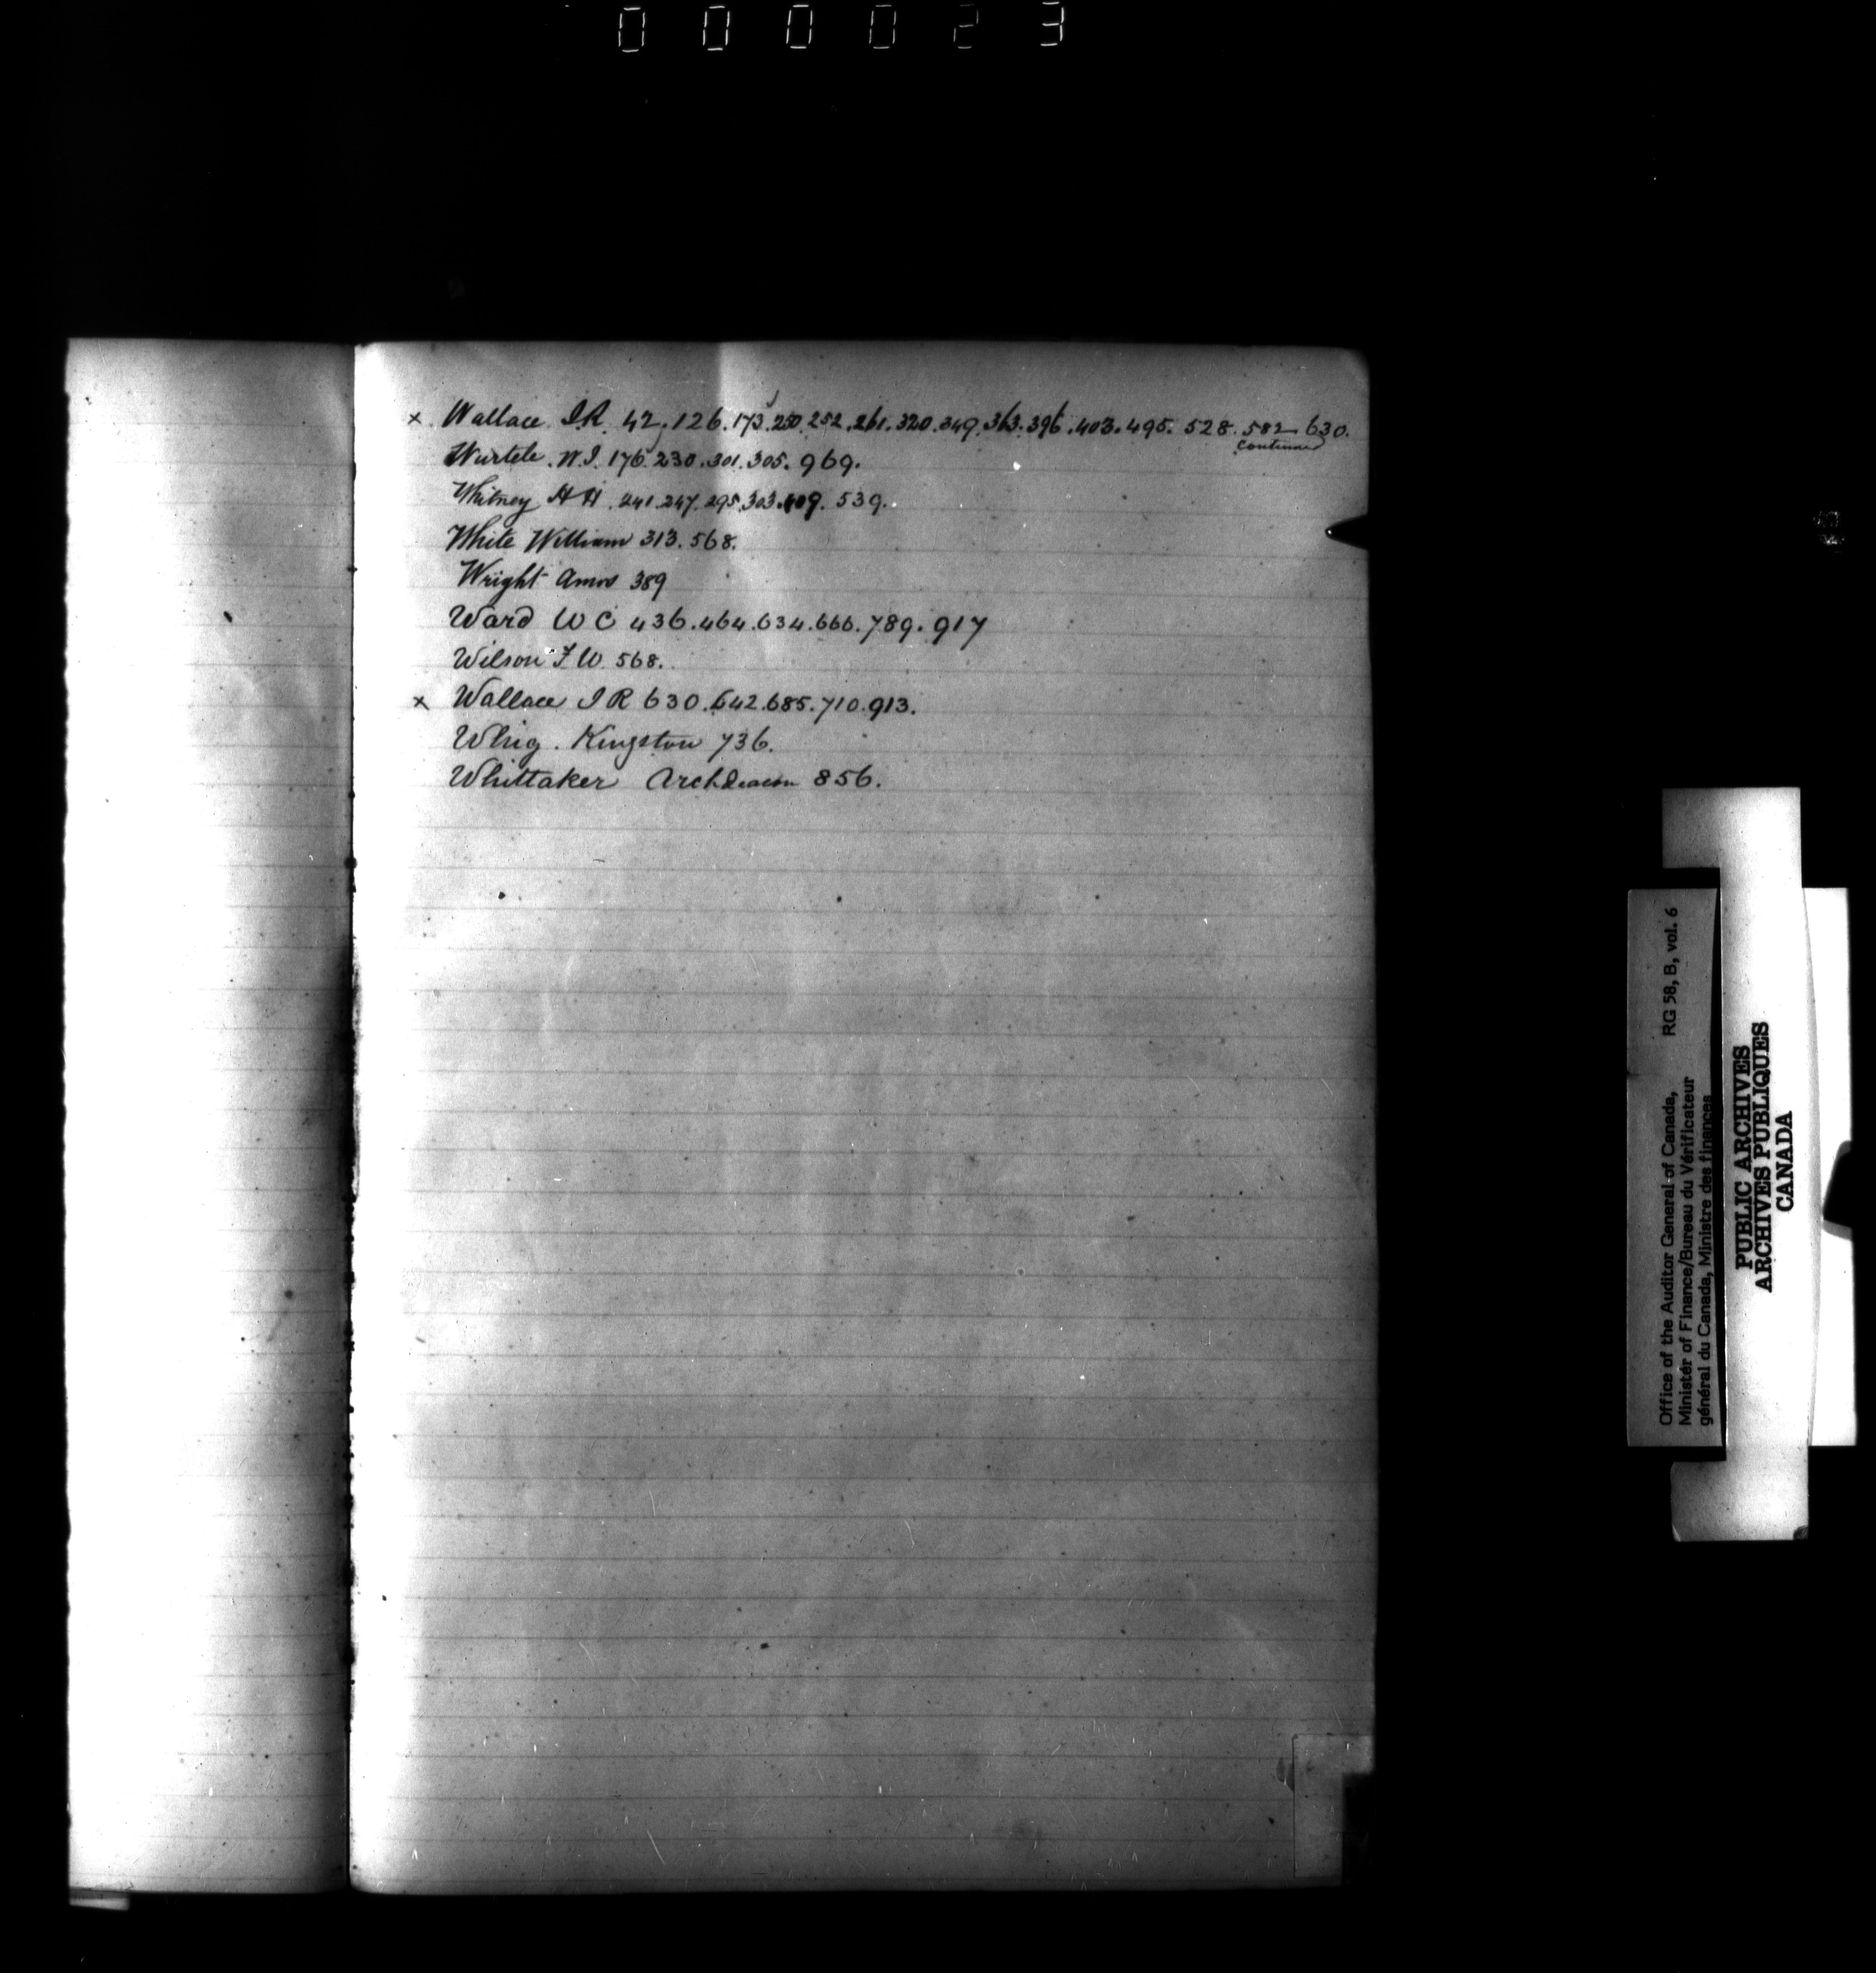 000023
x Wallace I.R. 42.126.173.250.252.261.320.349.363.396.403.495.528.582.630.
continued
Wurtele. W.I. 176.230.301.305.969.
Whitney H H. 241.247.295.303.409.539.
White William 313.568.
Wright Amos 389
Ward W C 436.464.634.666.789.917
Wilson F W. 568.
x Wallace I R 630.642.685.710.913.
Whig. Kingston 736.
Whittaker Archdeacon 856.
Office of the Auditor General of Canada, RG 58, B, vol. 6
Minister of Finance/Bureau du Vérificateur
général du Canada, Ministre des finances
PUBLIC ARCHIVES
ARCHIVES PUBLIQUES
CANADA